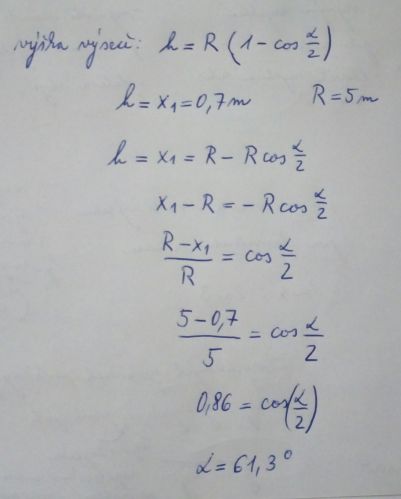 výška výseče: h = R (1 - cos α/2)
h = x₁ = 0,7m R = 5m
h = x₁ = R - R cos α/2
x₁ - R = - R cos α/2
(R - x₁)/R = cos α/2
(5 - 0,7)/5 = cos α/2
0,86 = cos(α/2)
α = 61,3°